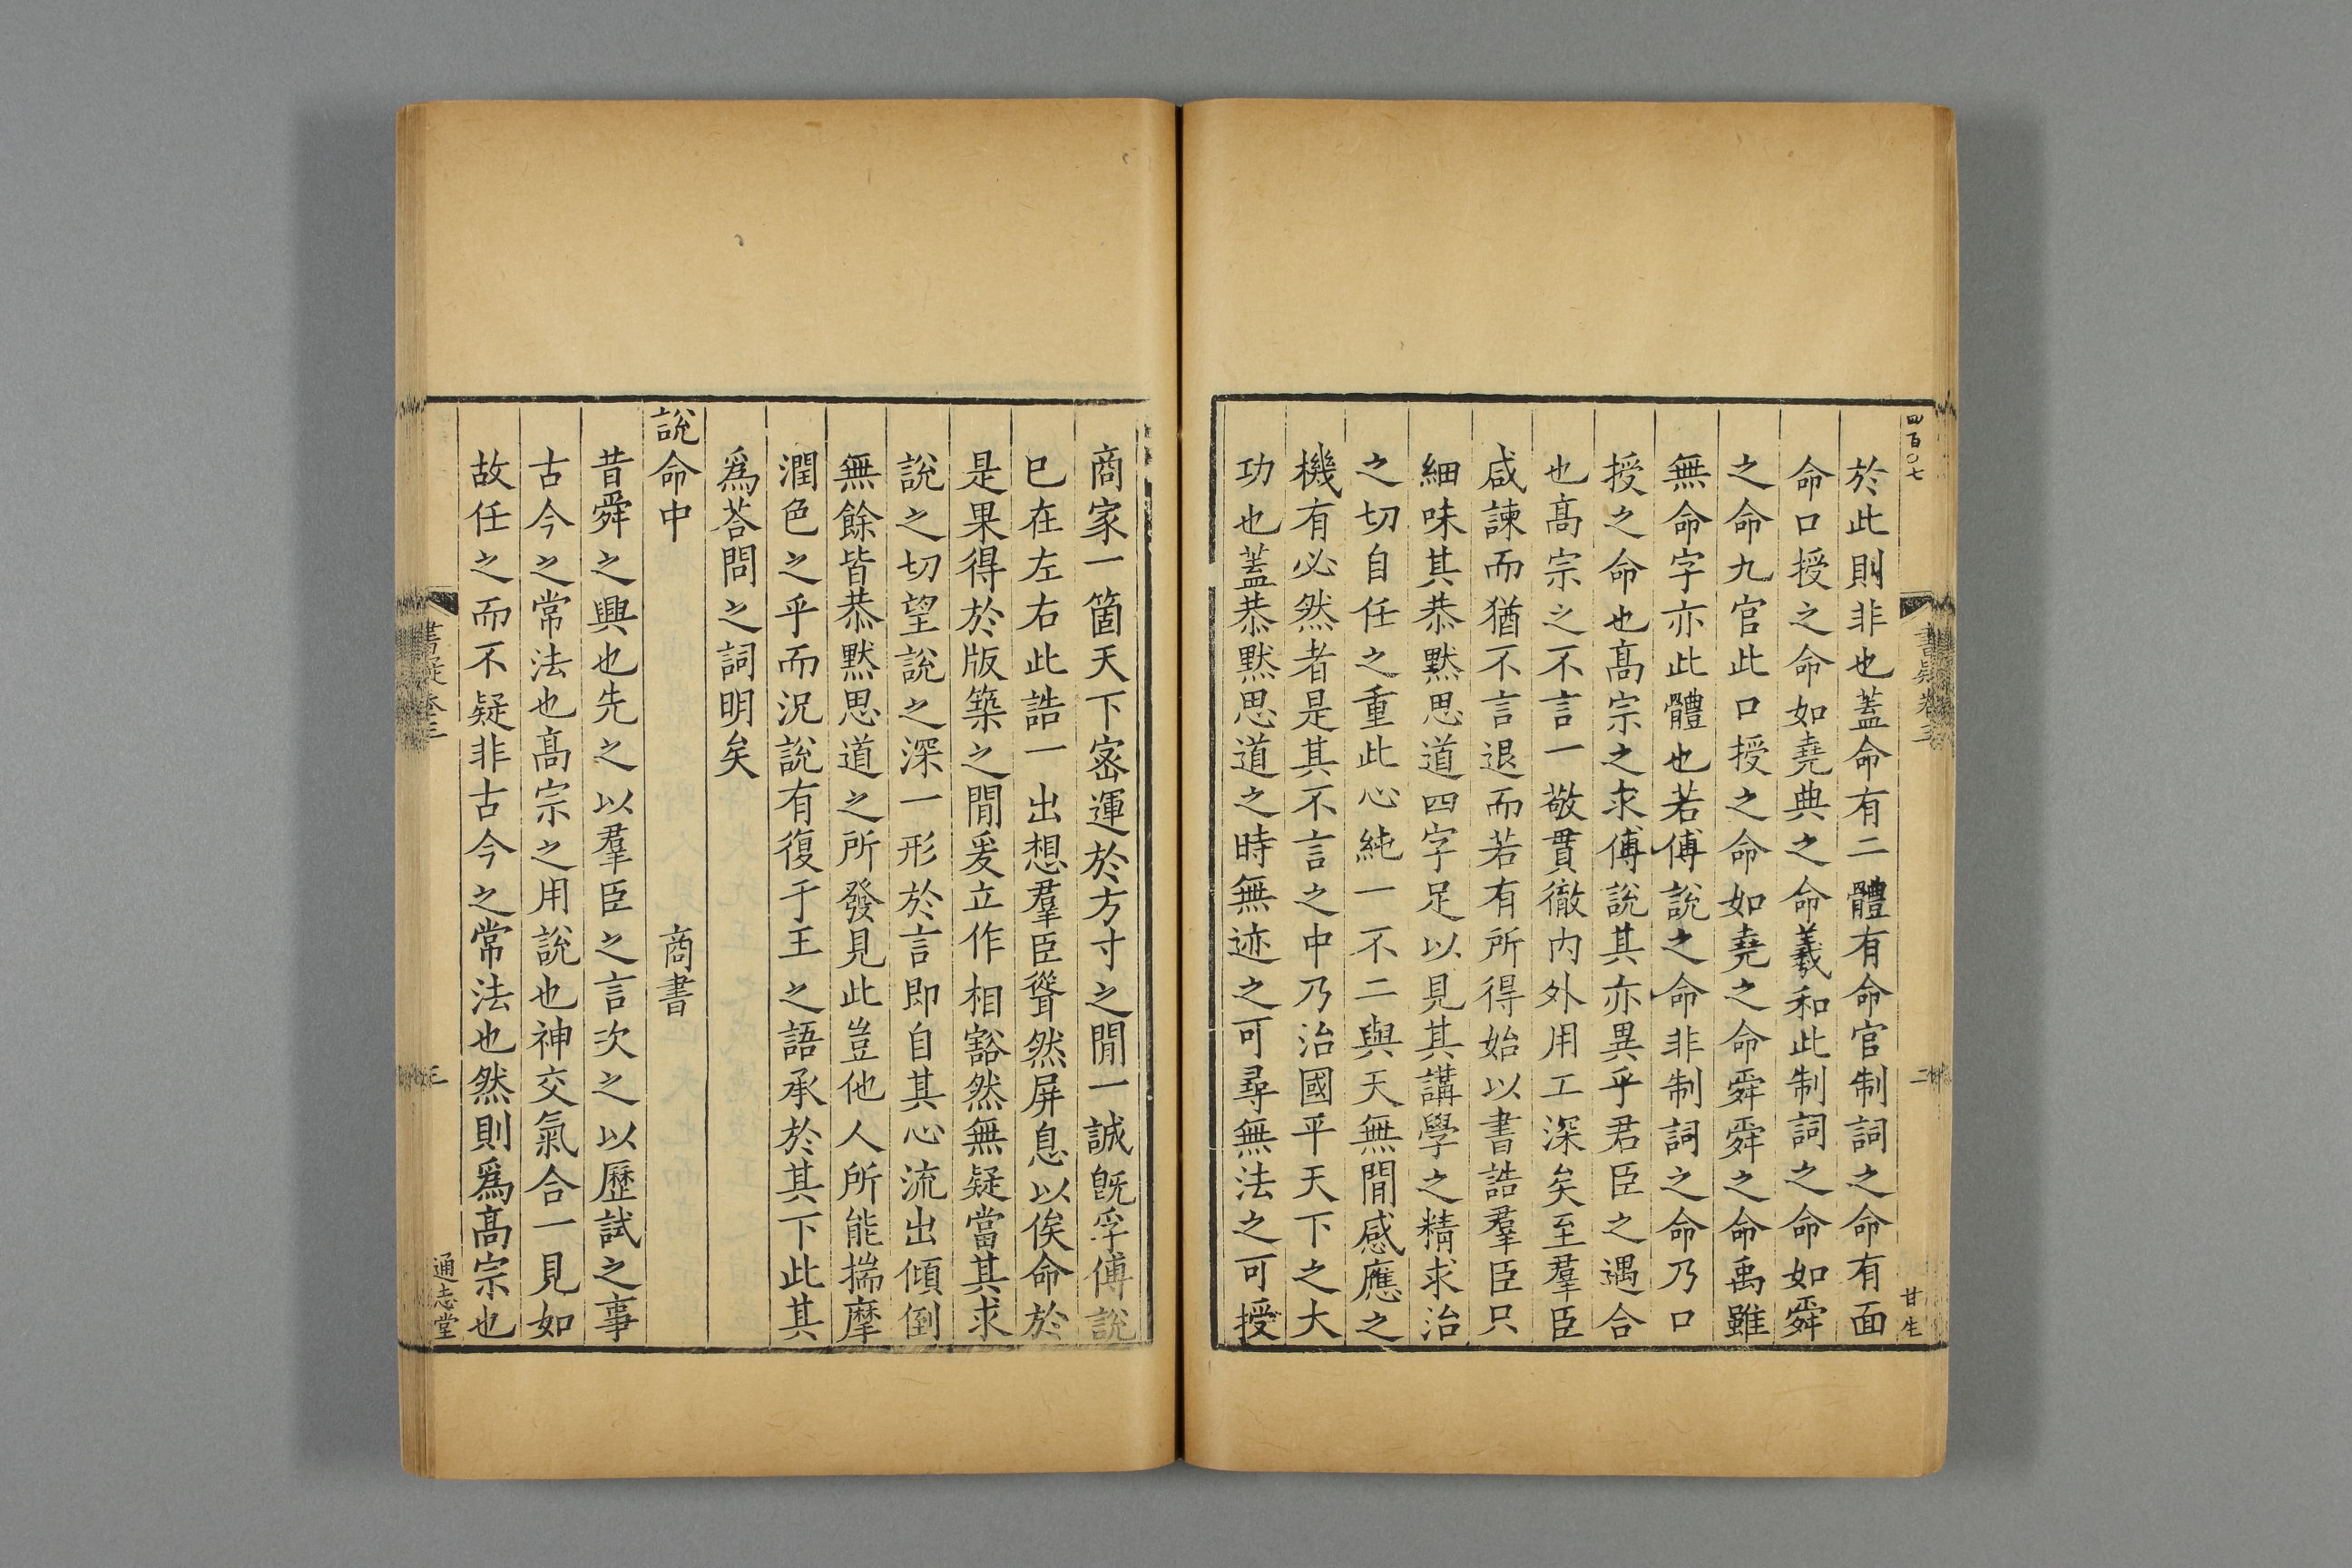 四百〇七
書疑卷三
二
甘生
於此則非也蓋命有二體有命官制詞之命有面
命口授之命如堯典之命羲和此制詞之命如舜
之命九官此口授之命如堯之命舜舜之命禹雖
無命字亦此體也若傅說之命非制詞之命乃口
授之命也髙宗之求傅說其亦異乎君臣之遇合
也髙宗之不言一敬貫徹内外用工深矣至羣臣
咸諫而猶不言退而若有所得始以書誥羣臣只
細味其恭黙思道四字足以見其講學之精求治
之切自任之重此心純一不二與天無閒感應之
機有必然者是其不言之中乃治國平天下之大
功也蓋恭黙思道之時無迹之可尋無法之可授
商家一箇天下宻運於方寸之閒一誠旣孚傅說
已在左右此誥一出想羣臣聳然屏息以俟命於
是果得於版築之閒爰立作相豁然無疑當其求
說之切望說之深一形於言即自其心流出傾倒
無餘皆恭黙思道之所發見此豈他人所能揣摩
潤色之乎而況說有復于王之語承於其下此其
爲荅問之詞明矣
說命中 商書
昔舜之興也先之以羣臣之言次之以歷試之事
古今之常法也髙宗之用說也神交氣合一見如
故任之而不疑非古今之常法也然則爲髙宗也
書疑卷三
三
通志堂